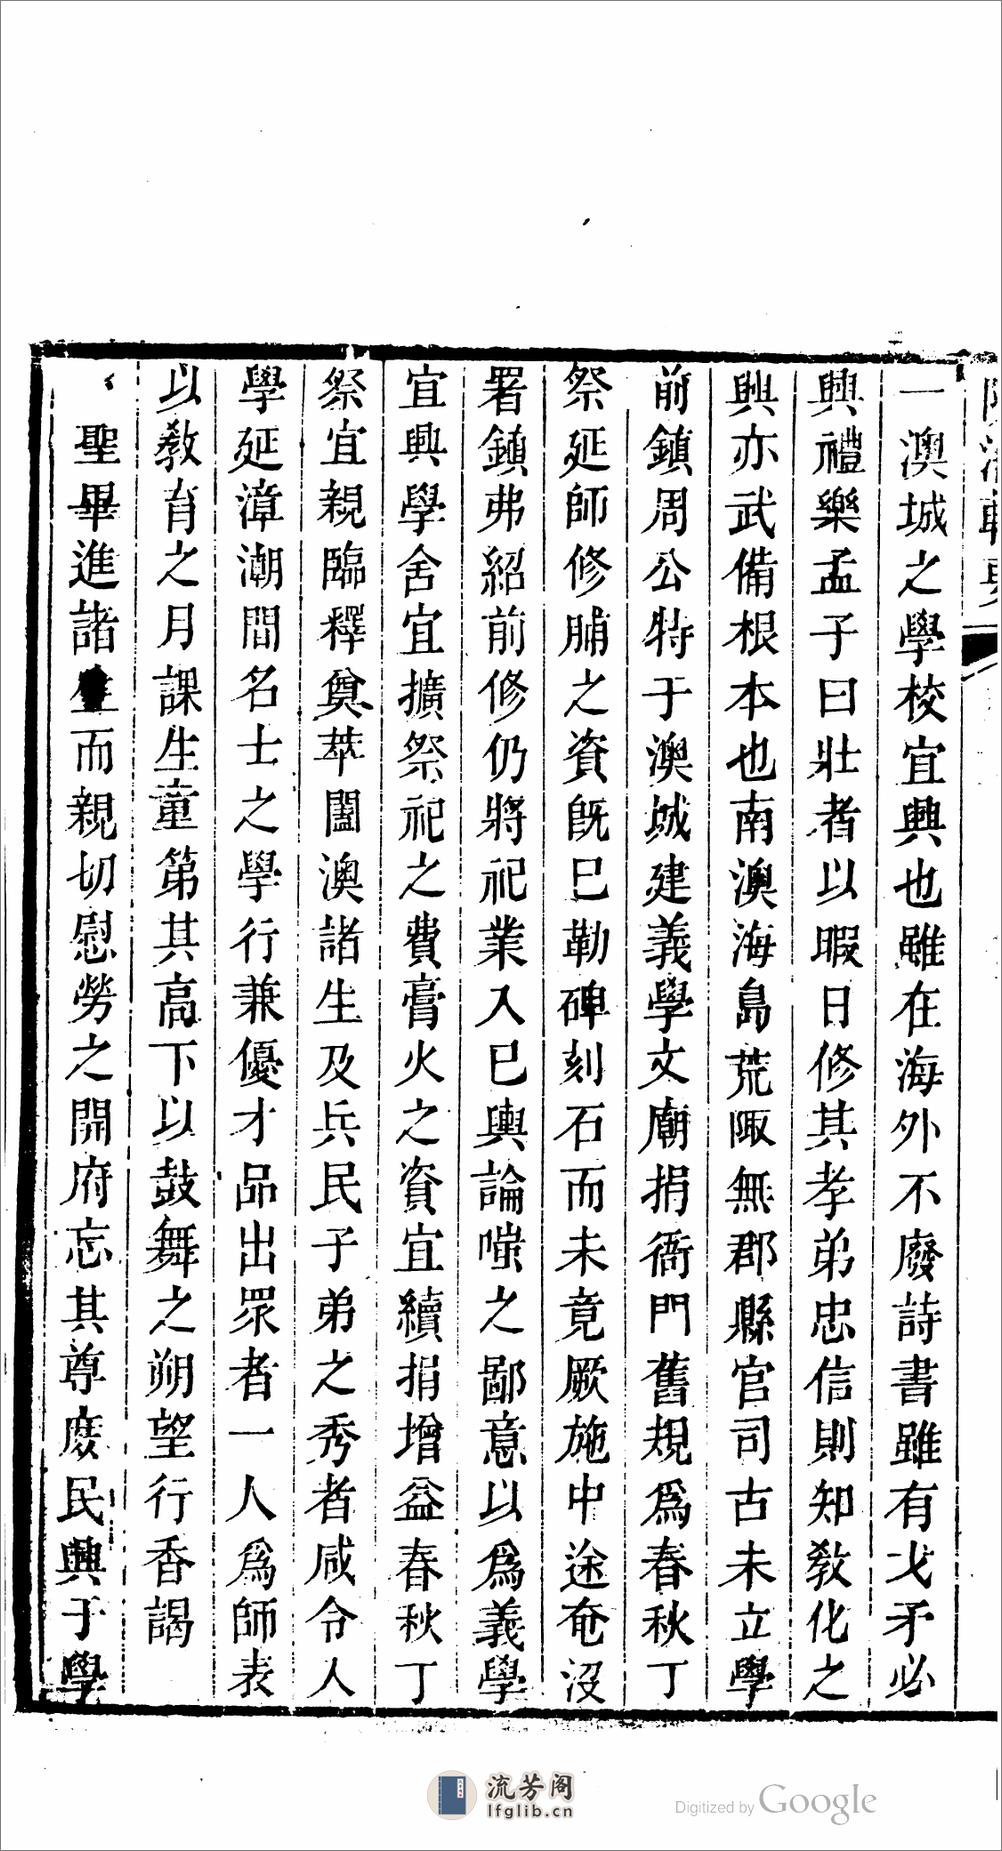 一澳城之學校宜興也雖在海外不廢詩書雖有戈矛必
興禮樂孟子曰壯者以暇日修其孝弟忠信則知敎化之
興亦武備根本也南澳海島荒陬無郡縣官司古未立學
前鎮周公特于澳城建義學文廟捐衙門舊規爲春秋丁
祭延師修脯之資旣巳勒碑刻石而未竟厥施中途奄沒
署鎮弗紹前修仍將祀業入巳輿論嗤之鄙意以爲義學
宜興學舍宜擴祭祀之費膏火之資宜續捐增益春秋丁
祭宜親臨釋奠萃闔澳諸生及兵民子弟之秀者咸令入
學延漳潮間名士之學行兼優才品出眾者一人爲師表
以敎育之月課生童第其高下以鼓舞之朔望行香謁
聖畢進諸生而親切慰勞之開府忘其尊庶民興于學
流芳阁
lfglib.cn
Digitized by Google